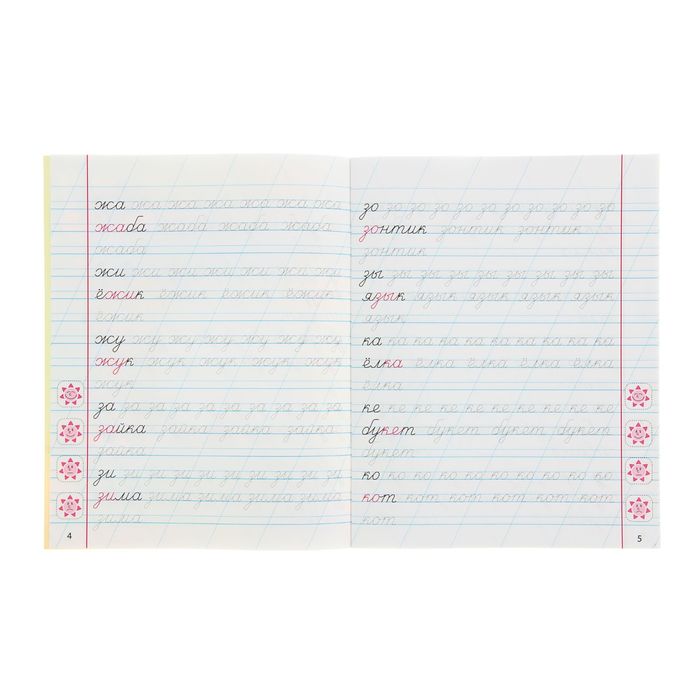 жа жа жа жа жа жа жа
жаба жаба жаба жаба
жаба
жи жи жи жи жи жи жи
ёжик ёжик ёжик ёжик
ёжик
жу жу жу жу жу жу жу
жук жук жук жук жук
жук
за за за за за за за за за за
зайка зайка зайка зайка
зайка
зи зи зи зи зи зи зи зи зи
зима зима зима зима зима
зима
4
зо зо зо зо зо зо зо зо зо зо зо
зонтик зонтик зонтик
зонтик
зы зы зы зы зы зы зы зы
язык язык язык язык язык
язык
ка ка ка ка ка ка ка ка ка ка
ёлка ёлка ёлка ёлка ёлка
ёлка
ке ке ке ке ке ке ке ке ке ке
букет букет букет букет
букет
ко ко ко ко ко ко ко ко ко ко
кот кот кот кот кот кот
кот
5